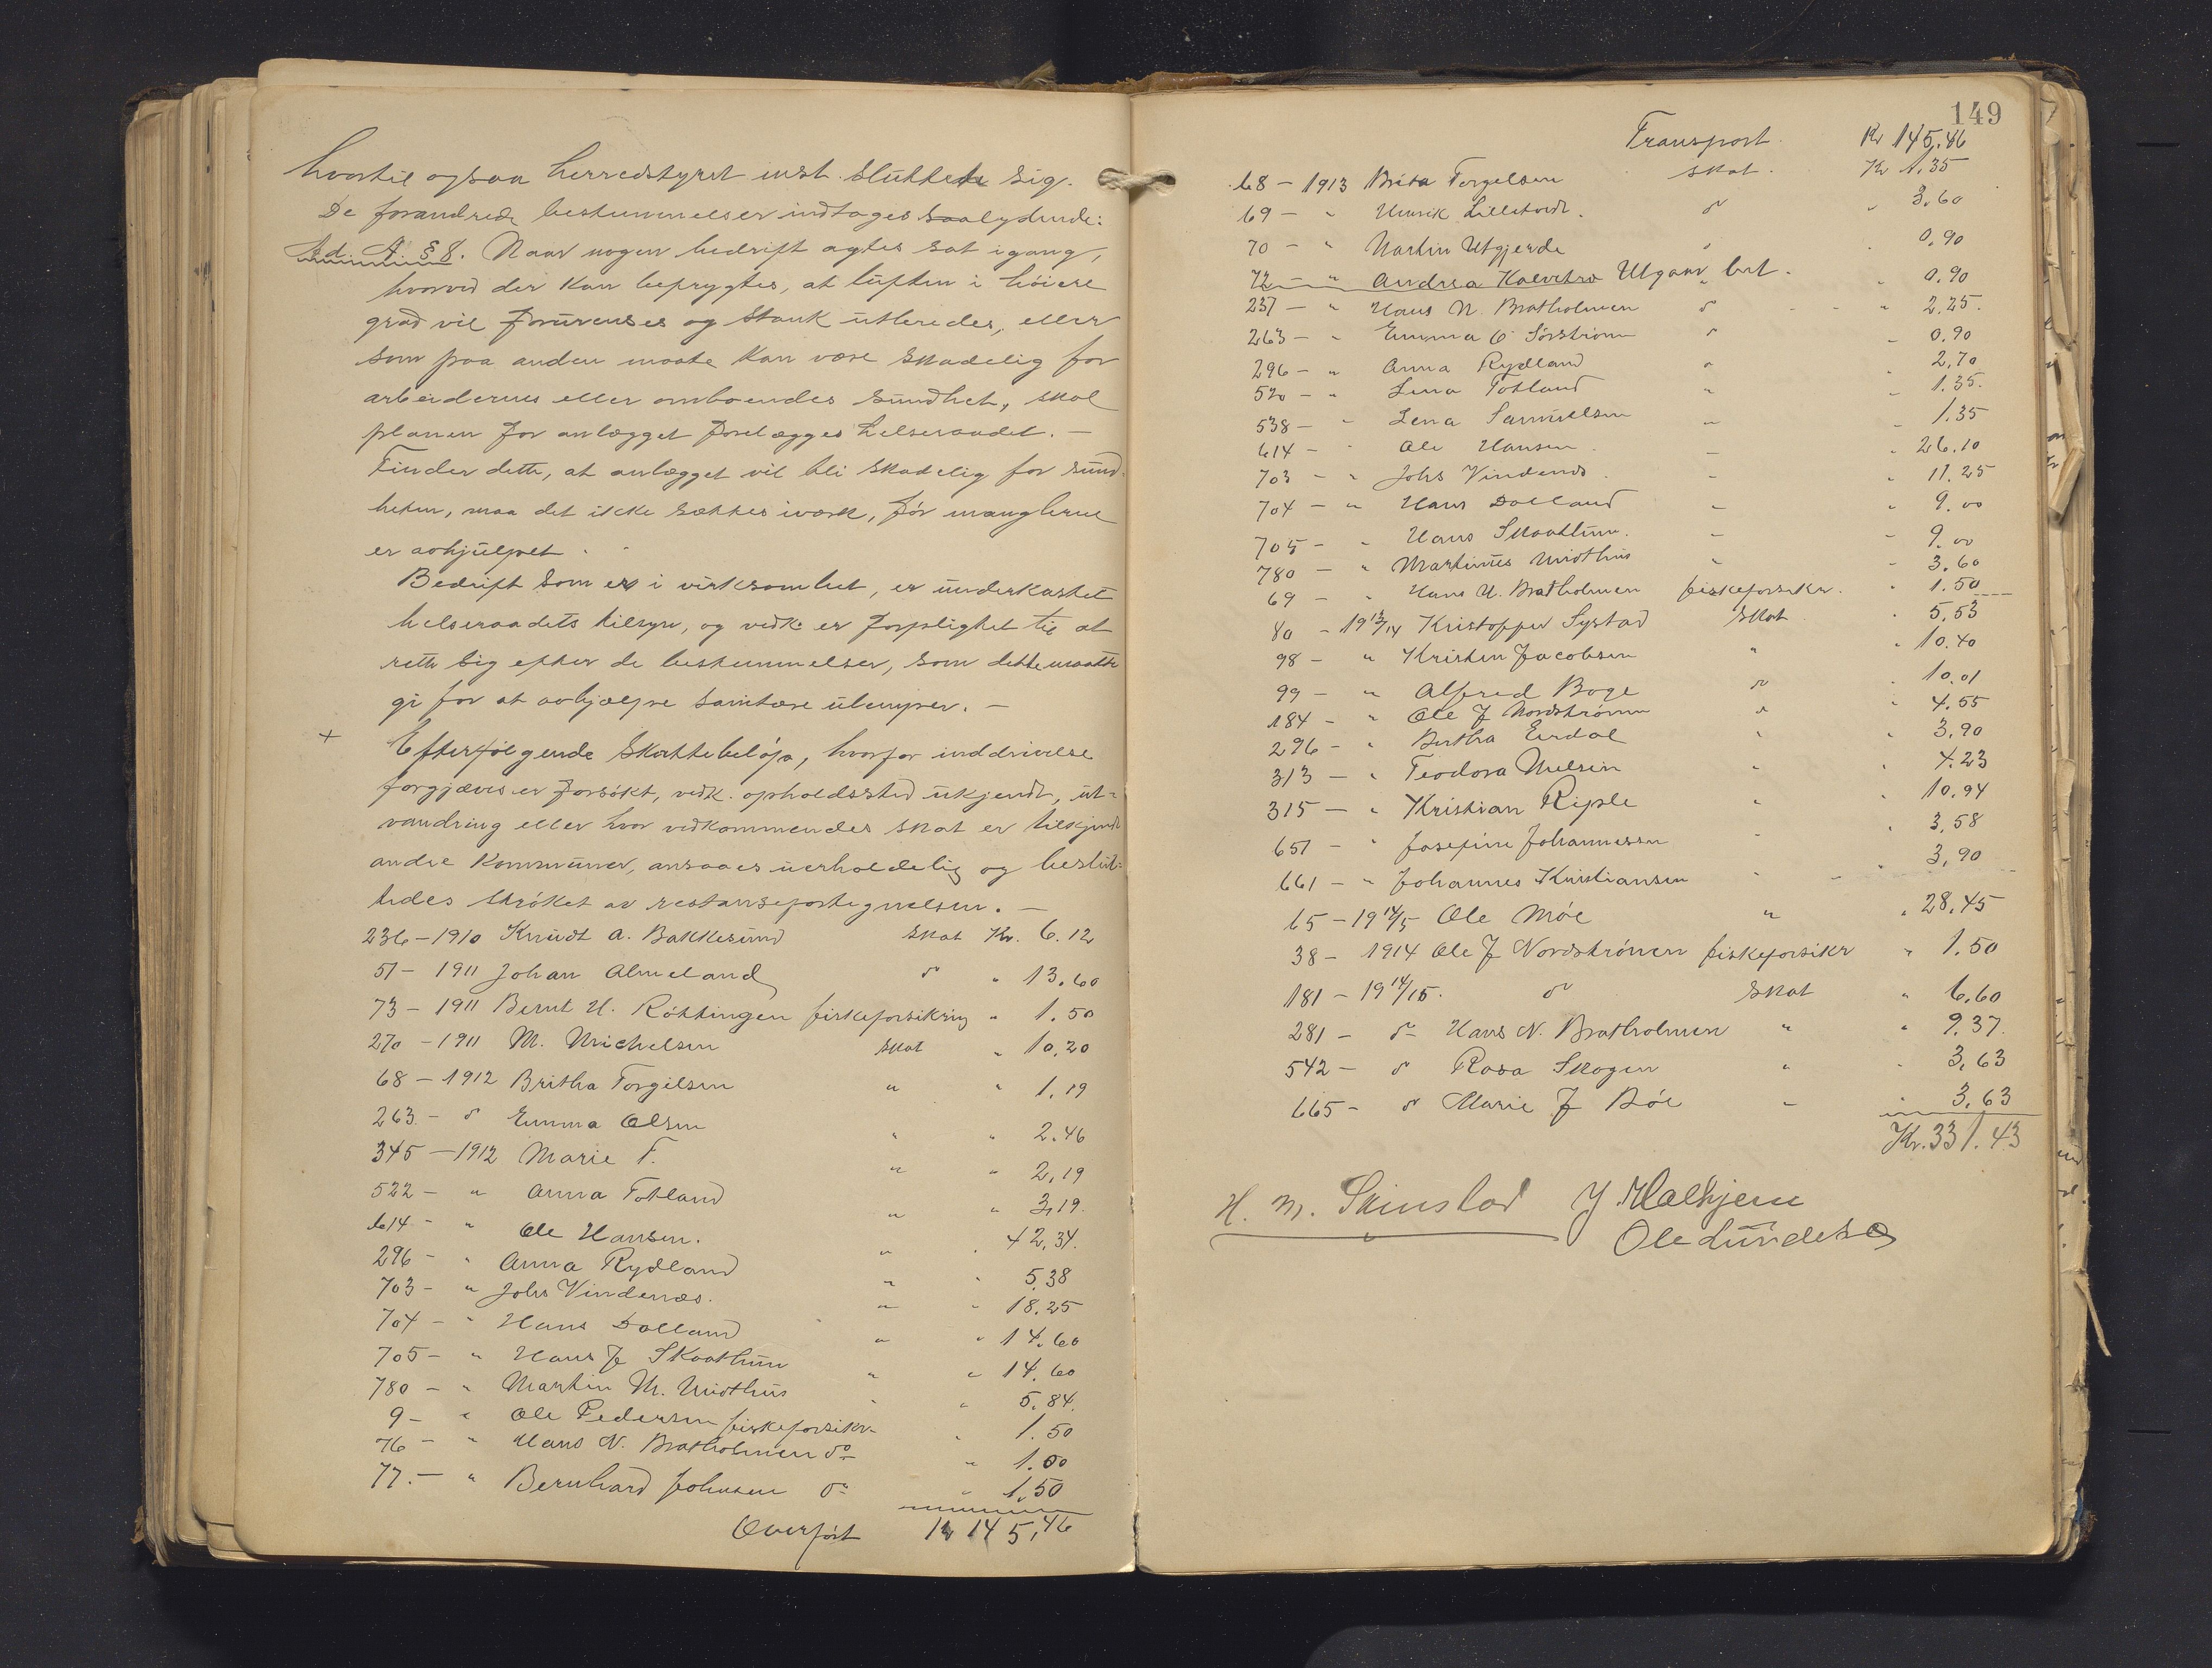 hvortil ogsaa herredstyret enst. sluttede sig.
De forandrede bestemmelser indtages saalydende:
Ad. A. § 8. Naar nogen bedrift agtes sat igang,
hvorved der kan befrygtes, at luften i höiere
grad vil forurenses og stank utbredes, eller
som paa anden maate kan være skadelig for
arbeidernes eller omboendes sundhet, skal
planen for anlægget forelægges helseraadet. —
Finder dette, at anlægget vil bli skadelig for sund-
heten, maa det ikke sættes iverk, för manglerne
er avhjulpet.
Bedrift som er i virksomhet, er underkastet
helseraadets tilsyn, og vedk. er forpligtet til at
rette sig efter de bestemmelser, som dette maatte
gi for at avhjælpe sanitære ulemper. —
+ Efterfølgende skattebeløp, hvorfor inddrivelse
forgjæves er forsökt, vedk. opholdssted ukjendt, ut-
vandring eller hvor vedkommendes skat er tilkjendt
andre kommuner, ansaaes uerholdelig og beslut-
tedes strøket av restansefortegnelsen. —
236 – 1910 Knudt A. Bakkesund skat Kr. 6.12
51 – 1911 Johan Almeland do " 13.60
73 – 1911 Bernt H. Röttingen fiskeforsikring " 1.50
270 – 1911 M. Michelsen skat " 10.20
68 – 1912 Britha Torgilsen " " 1.19
263 – do Emma Olsen " " 2.46
345 – 1912 Marie F. " " 2.19
522 – " Anna Totland " " 3.19
614 – " Ole Hansen. " " 42.34.
296 – " Anna Rydland " " 5.38
703 – " Johs Vindenæs. " " 18.25
704 – " Hans Dalland " " 14.60
705 – " Hans J Skaathun " " 14.60
780 – " Martin M. Midthus " " 5.84.
9 – " Ole Pedersen fiskeforsikr. " 1.50
76 – " Hans N. Bratholmen do " 1.00
77. – " Bernhard Johnsen do " 1.50
Overfört Kr 145,46
149
Transport. Kr 145.46
68 – 1913 Brita Torgelsen skat. Kr 1.35
69 – " Henrik Lilletvedt. do " 3.60
70 – " Martin Utgjerde " " 0.90
72 – " Andrea Kalvetræ Utgaar, bet. " 0.90
237 – " Hans N. Bratholmen do " 2.25.
263 – " Emma O Sörström do " 0.90
296 – " Anna Rydland " " 2.70
520 – " Lina Totland " " 1.35.
538 – " Lena Samuelsen " " 1.35
614 – " Ole Hansen " " 26.10
703 – " Johs Vindenes " " 11.25
704 – " Hans Dalland " " 9.00
705 – " Hans Skaathun. " " 9.00
780 – " Martinus Midthus " " 3.60
69 – " Hans N. Bratholmen fiskeforsikr. " 1.50
80 – 1913/14 Kristoffer Systad skat " 5.53
98 – " Kristen Jacobsen " " 10.40
99 – " Alfred Boge do " 10.01
184 – " Ole J Nordströnen do " 4.55
296 – " Bertha Eirdal " " 3.90
313 – " Teodora Nielsen " " 4.23
315 – " Kristian Riple " " 10.94
651 – " Josefine Johannessen " " 3.58
661 – " Johannes Kristiansen " " 3.90
65 – 1914/5 Ole Möe " " 28.45
38 – 1914 Ole J Nordströnen fiskeforsikr " 1.50
181 – 1914/15. do skat " 6.60
281 – do Hans N. Bratholmen " " 9.37.
542 – do Rosa Skogen " " 3,63
665 – do Marie J Böe " " 3.63
Kr. 331.43
H. M. Skinstad J Halhjem
Ole Lunde